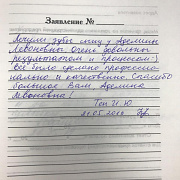 Заявление №
Лечили зубы сыну у Аделины
Левоновны. Очень довольны
результатом и процессом :)
Всё было сделано профессио-
нально и качественно. Спасибо
большое Вам, Аделина
Левоновна!
Теп И. Ю